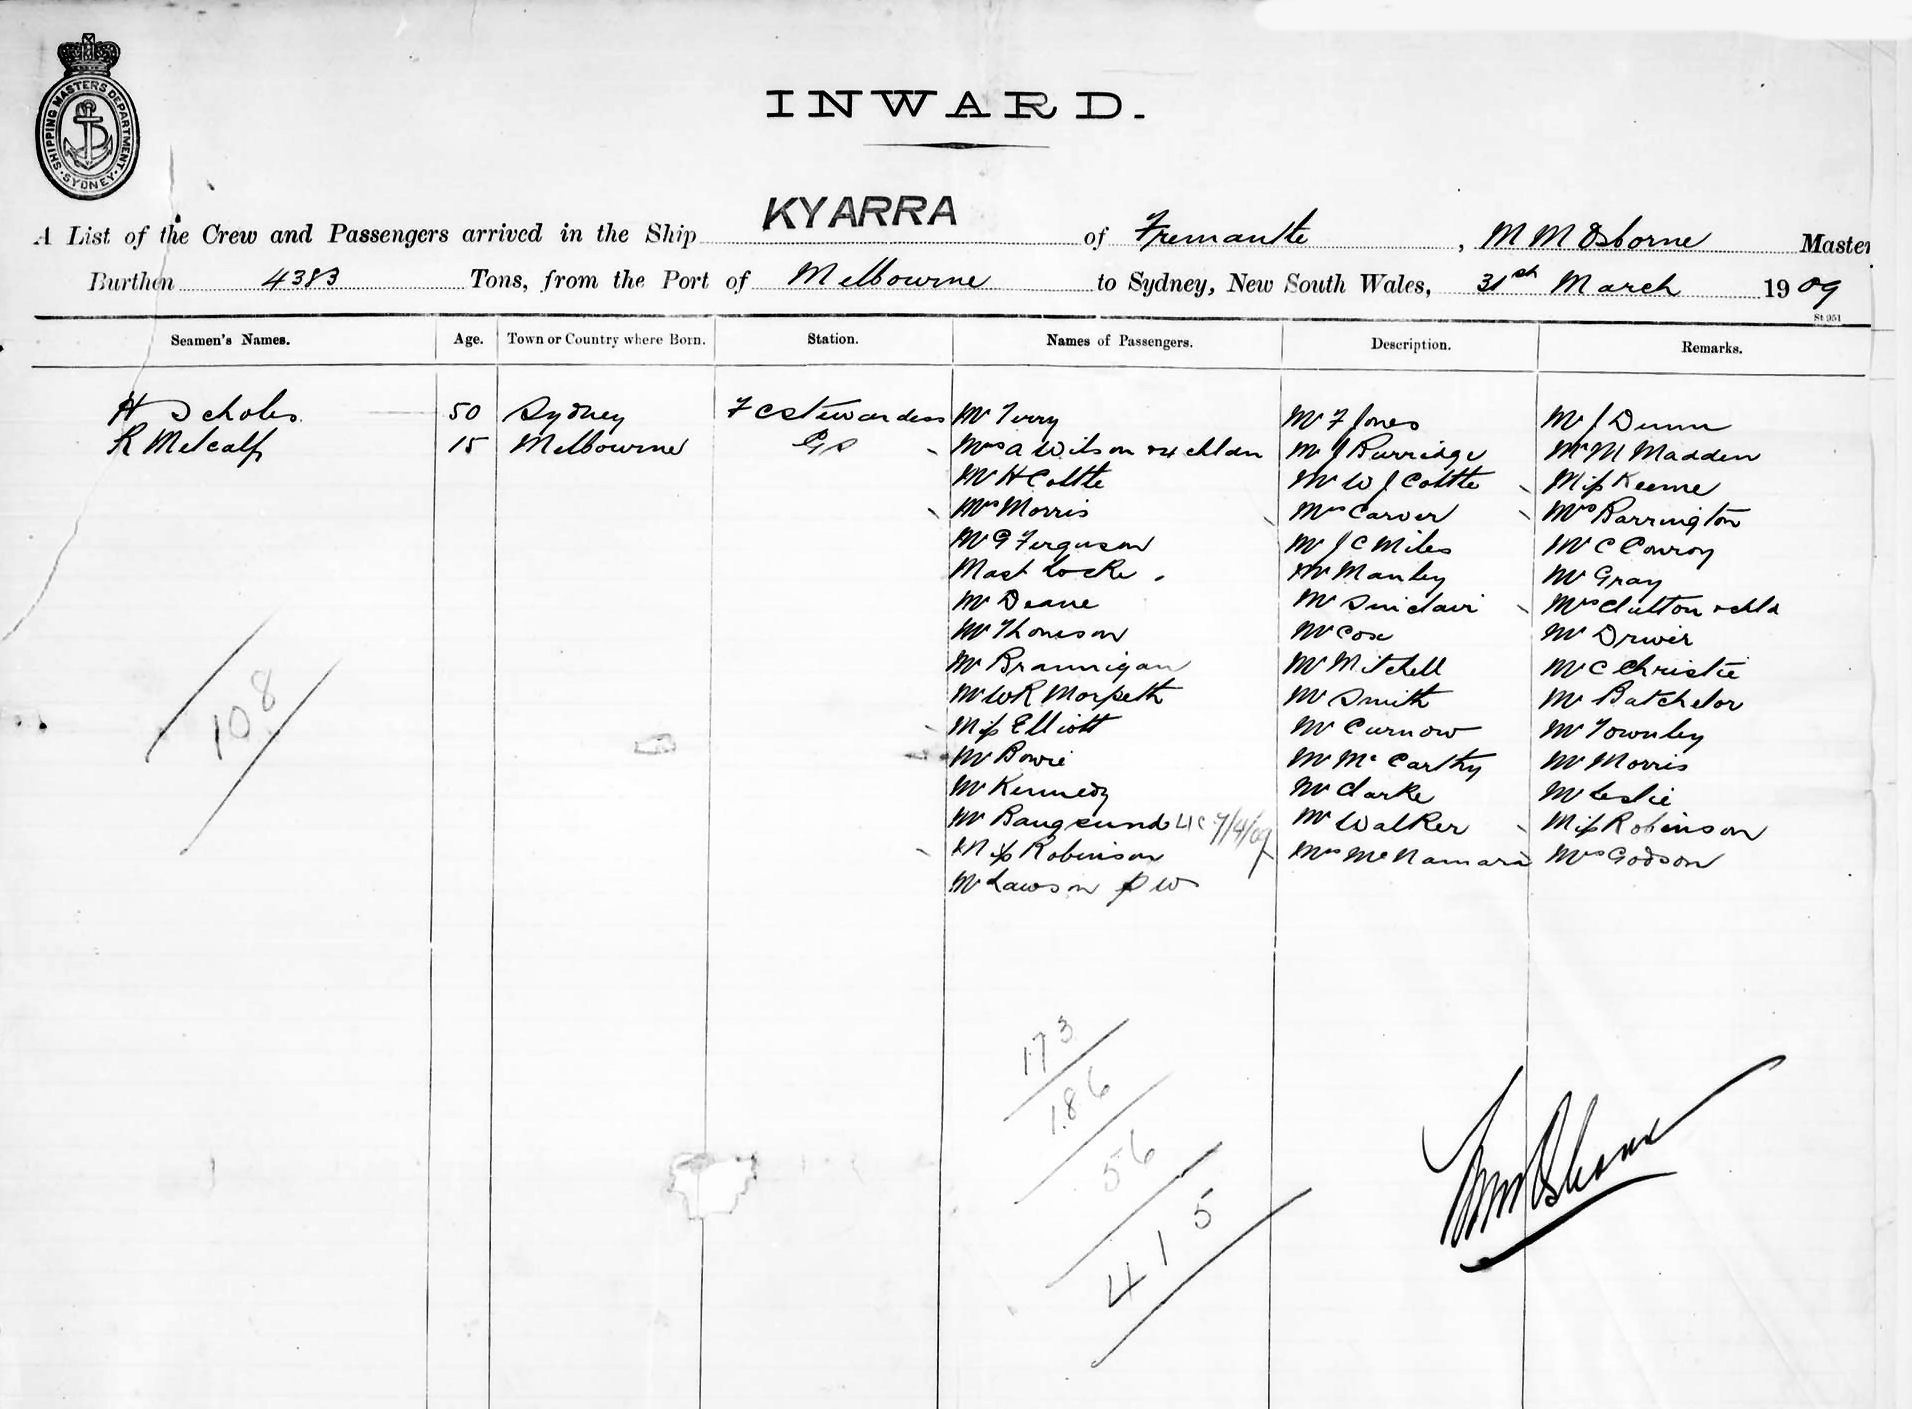 SHIPPING MASTERS DEPARTMENT. SYDNEY
INWARD.
A List of the Crew and Passengers arrived in the Ship KYARRA of Fremantle, M M Osborne Master
Burthen 4383 Tons, from the Port of Melbourne to Sydney, New South Wales, 31st March 1909
St 951
Seamen's Names. Age. Town or Country where Born. Station. Names of Passengers. Description. Remarks.
H Scholes 50 Sydney F C Stewardess Mr Terry Mr F Jones Mr J Dunn
R Metcalf 15 Melbourne GS Mrs A Wilson + 4 chldn Mr J Burridge Mr M Madden
Mr H Cottle Mr W J Cottle Miss Keene
Mrs Morris Mrs Carver Mrs Barrington
Mr G Ferguson Mr J C Miles Mr C Conroy
Mast Locke. Mr Manley Mr Gray
Mr Deane Mr Sinclair Mrs Clutton + chld
Mr Thomson Mr Cox Mr Drwer
Mr Brannigan Mr Mitchell Mr C Christie
Mr W R Morpeth Mr Smith Mr Batchelor
Miss Elliott Mr Curnow Mr Townley
Mr Bowie Mr McCarthy Mr Morris
Mr Kennedy Mr Clarke Mr Leslie
Mr Baugsund 7/4/09 Mr Walker Miss Robinson
Miss Robinson Mrs McNamara Mrs Godson
Mr Lawson P W
108
173
186
56
415
M M Osborne